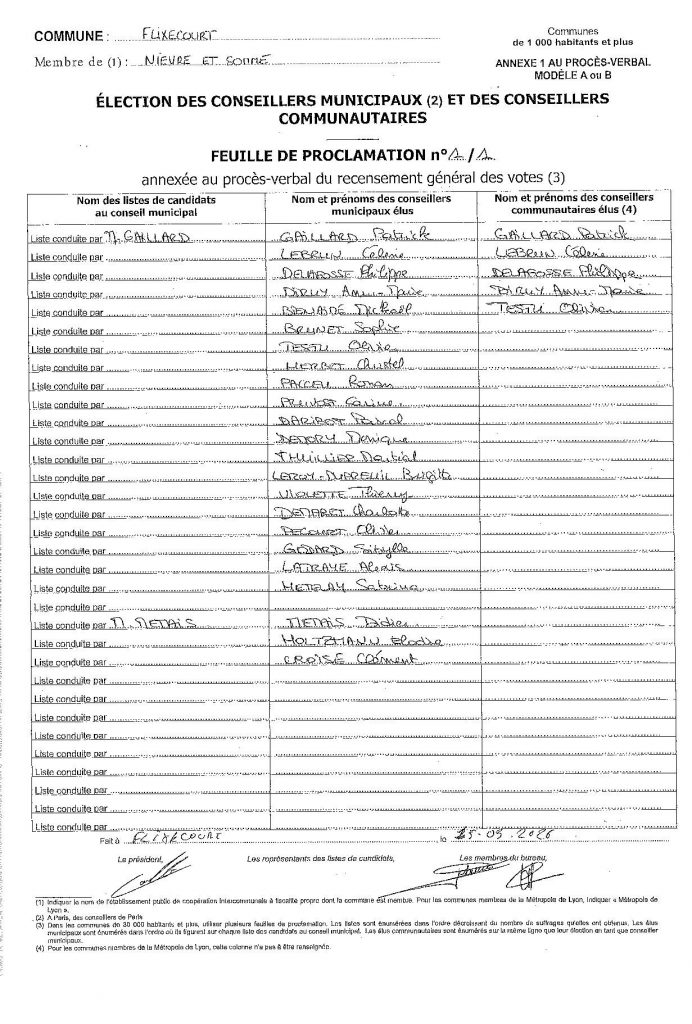 COMMUNE : FLIXECOURT
Communes
de 1 000 habitants et plus
Membre de (1) : NIEVRE ET SOMME
ANNEXE 1 AU PROCÈS-VERBAL
MODÈLE A ou B
ÉLECTION DES CONSEILLERS MUNICIPAUX (2) ET DES CONSEILLERS
COMMUNAUTAIRES
FEUILLE DE PROCLAMATION n° 1/1
annexée au procès-verbal du recensement général des votes (3)
Nom des listes de candidats
au conseil municipal
Nom et prénoms des conseillers
municipaux élus
Nom et prénoms des conseillers
communautaires élus (4)
Liste conduite par M. GAILLARD GAILLARD Patrick GAILLARD Patrick
Liste conduite par LEBRUN Célene LEBRUN Célene
Liste conduite par DELAFOSSE Philippe DELAFOSSE Philippe
Liste conduite par DIRUY Anne-Marie DIRUY Anne-Marie
Liste conduite par Mickaël TESTU Olivier
Liste conduite par BRUNET Sophie
Liste conduite par TESTU Olivier
Liste conduite par HERBET Christel
Liste conduite par Roman
Liste conduite par PREVOST
Liste conduite par Pascal
Liste conduite par Monique
Liste conduite par THUILLIER Martial
Liste conduite par LEROY-DUBREUIL Brigitte
Liste conduite par VIOLETTE Thierry
Liste conduite par DEMARET Charlotte
Liste conduite par DECOURT Olivier
Liste conduite par GODARD Sibylle
Liste conduite par LATRAYE Alexis
Liste conduite par METRAY Sabrina
Liste conduite par
Liste conduite par M. METAIS METAIS Didier
Liste conduite par HOLTZMANN Elodie
Liste conduite par CROISE Clément
Liste conduite par
Liste conduite par
Liste conduite par
Liste conduite par
Liste conduite par
Liste conduite par
Liste conduite par
Liste conduite par
Liste conduite par
Fait à FLIXECOURT , le 15-03-2026
Le président, Les représentants des listes de candidats, Les membres du bureau,
(1) Indiquer le nom de l'établissement public de coopération intercommunale à fiscalité propre dont la commune est membre. Pour les communes membres de la Métropole de Lyon, indiquer « Métropole de
Lyon ».
(2) A Paris, des conseillers de Paris
(3) Dans les communes de 30 000 habitants et plus, utiliser plusieurs feuilles de proclamation. Les listes sont énumérées dans l'ordre décroissant du nombre de suffrages qu'elles ont obtenus. Les élus
municipaux sont énumérés dans l'ordre où ils figurent sur chaque liste des candidats au conseil municipal. Les élus communautaires sont énumérés sur la même ligne que leur élection en tant que conseiller
municipaux.
(4) Pour les communes membres de la Métropole de Lyon, cette colonne n'a pas à être renseignée.